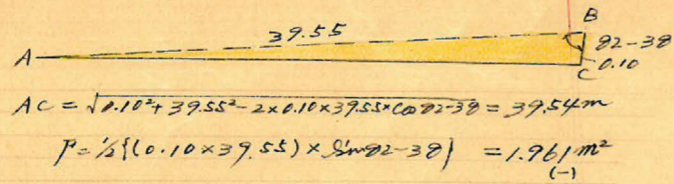 B
39.55
A
82-38
0.10
C
AC = √0.10²+39.55²-2×0.10×39.55×Cos82-38 = 39.54m
F = 1/2{(0.10×39.55)×Sin82-38} = 1.961m²
(-)